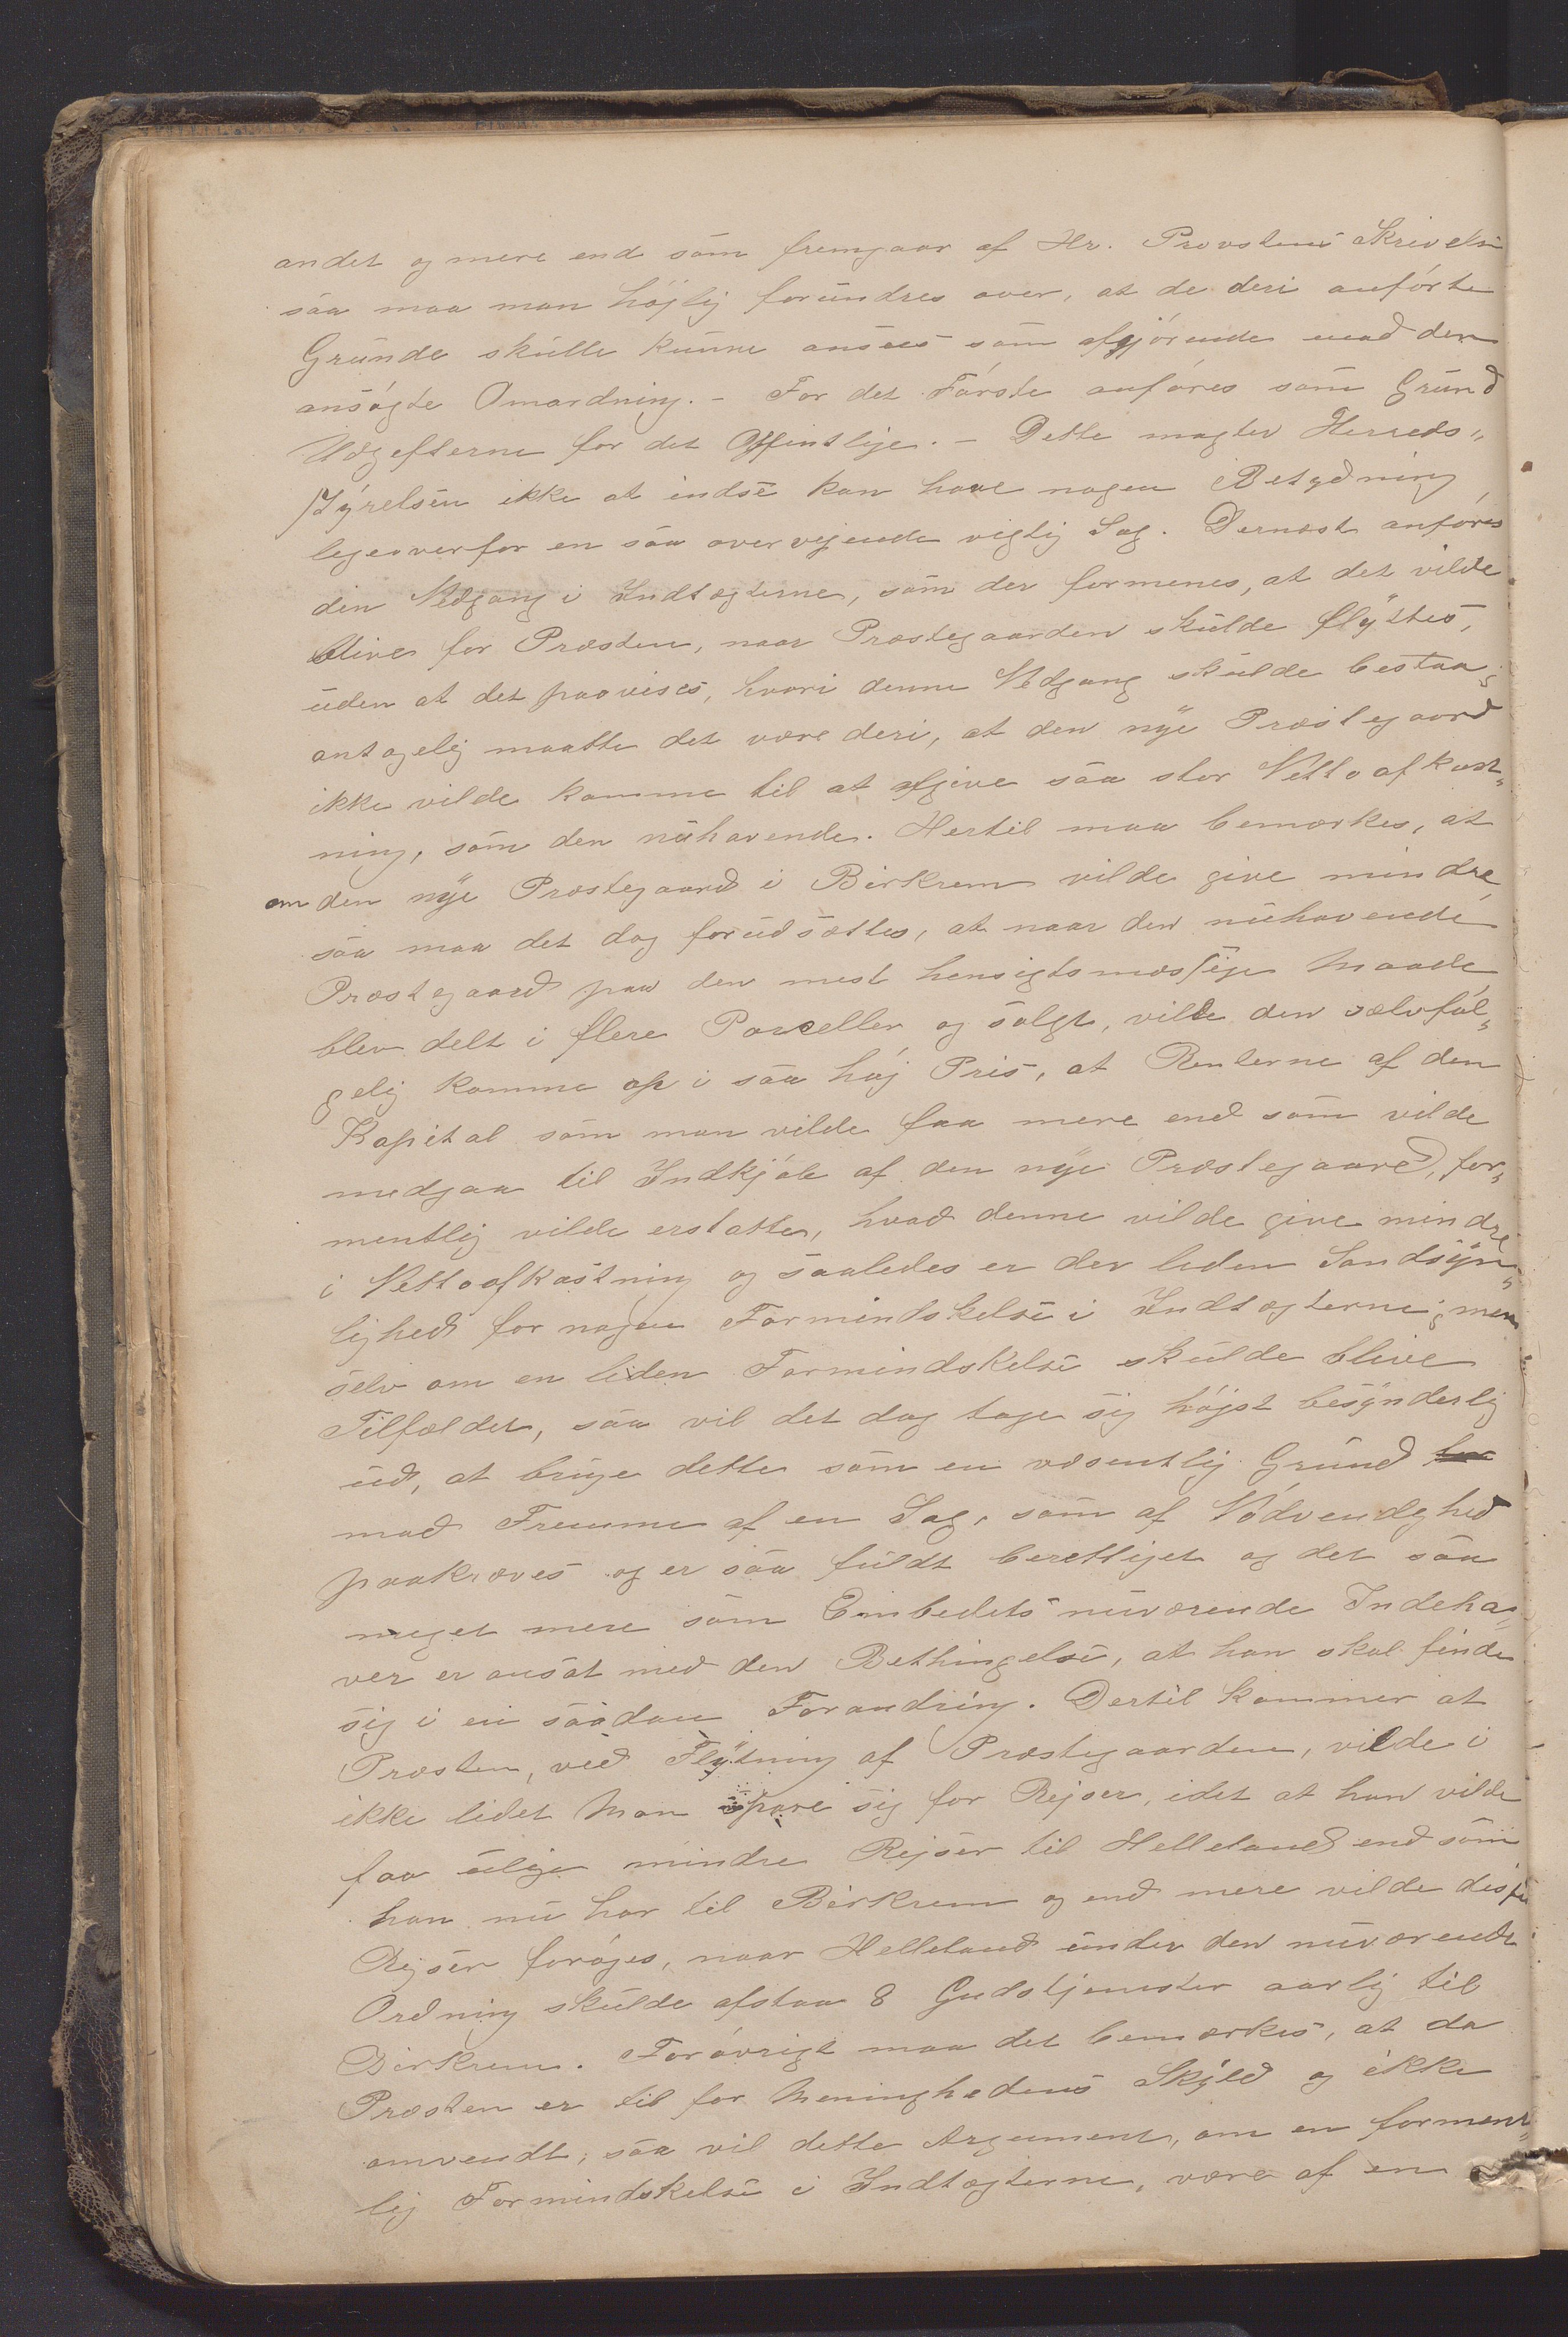 andet og mere end som fremgaar af Hr. Provstens Skrivelse
saa maa man højlig forundres over, at de deri anførte
Grunde skulle kunne ansees som afgjørende mod den
ansøgte Omordning. – For det Første anføres som Grund
Udgefterne for det Offentlige. – Dette magter Herreds„
styrelsen ikke at indse kan have nogen Betydning
ligeoverfor en saa overvejende vigtig Sag. Dernæst anføres
den Nedgang i Indtægterne, som der formenes, at det vilde
blive for Præsten, naar Præstegaarden skulde flyttes,
uden at det paavises, hvori denne Nedgang skulde bestaa;
antagelig maatte det være deri, at den nye Præstegaard
ikke vilde komme til at afgive saa stor Nettoafkast„
ning, som den nuhavende. Hertil maa bemærkes, at
om den nye Præstegaard i Birkrem vilde give mindre,
saa maa det dog forudsættes, at naar den nuhavende
Præstegaard paa den mest hensigtsmæssige Maade
blev delt i flere Parceller og solgt, vilde den sælvføl„
gelig komme op i saa høj Pris, at Renterne af den
Kapital som man vilde faa mere end som vilde
medgaa til Indkjøb af den nye Præstegaard, for„
mentlig vilde erstatte, hvad denne vilde give mindre
i Nettoafkastning og saaledes er der liden Sandsyn„
lighed for nogen Formindskelse i Indtægterne; men
selv om en liden Formindskelse skulde blive
Tilfældet, saa vil det dog tage sig højst besynderlig
ud, at bruge dette som en væsentlig Grund
mod Fremme af en Sag, som af Nødvendighed
paakræves og er saa fuldt berettiget og det saa
meget mere som Embedets nuværende Indeha„
ver er ansat med den Bethingelse, at han skal finde
sig i en saadan Forandring. Dertil kommer at
Præsten, ved Flytning af Præstegaarden, vilde i
ikke lidet Mon spare sig for Rejser, idet at han vilde
faa ulige mindre Rejser til Helleland end som
han nu har til Birkrem og end mere vilde disse
Rejser forøges, naar Helleland under den nuværende
Ordning skulde afstaa 8 Gudstjenester aarlig til
Birkrem. Forøvrigt maa det bemærkes, at da
Præsten er til for Menighedens Skyld og ikke
omvendt, saa vil dette Argument, om en forment„
lig Formindskelse i Indtægterne, være af en